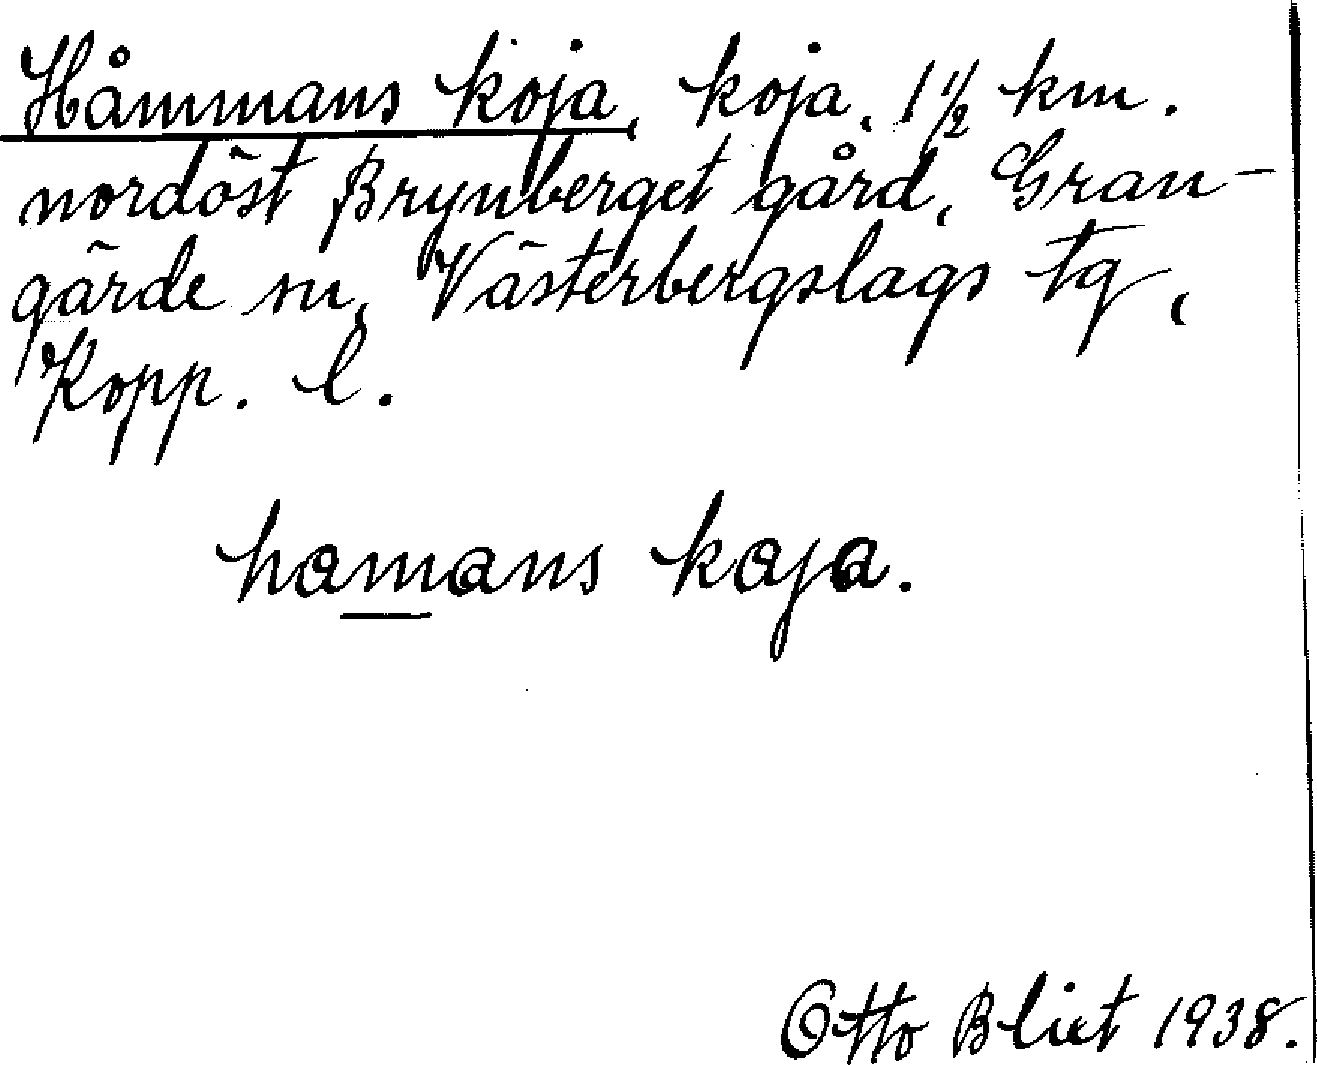 Håmmans koja, koja, 1 1/2 km.
nordöst Brynberget gård, Gran-
gärde sn, Västerbergslags tg,
Kopp. l.
hamans kaja.
Otto Blixt 1938.